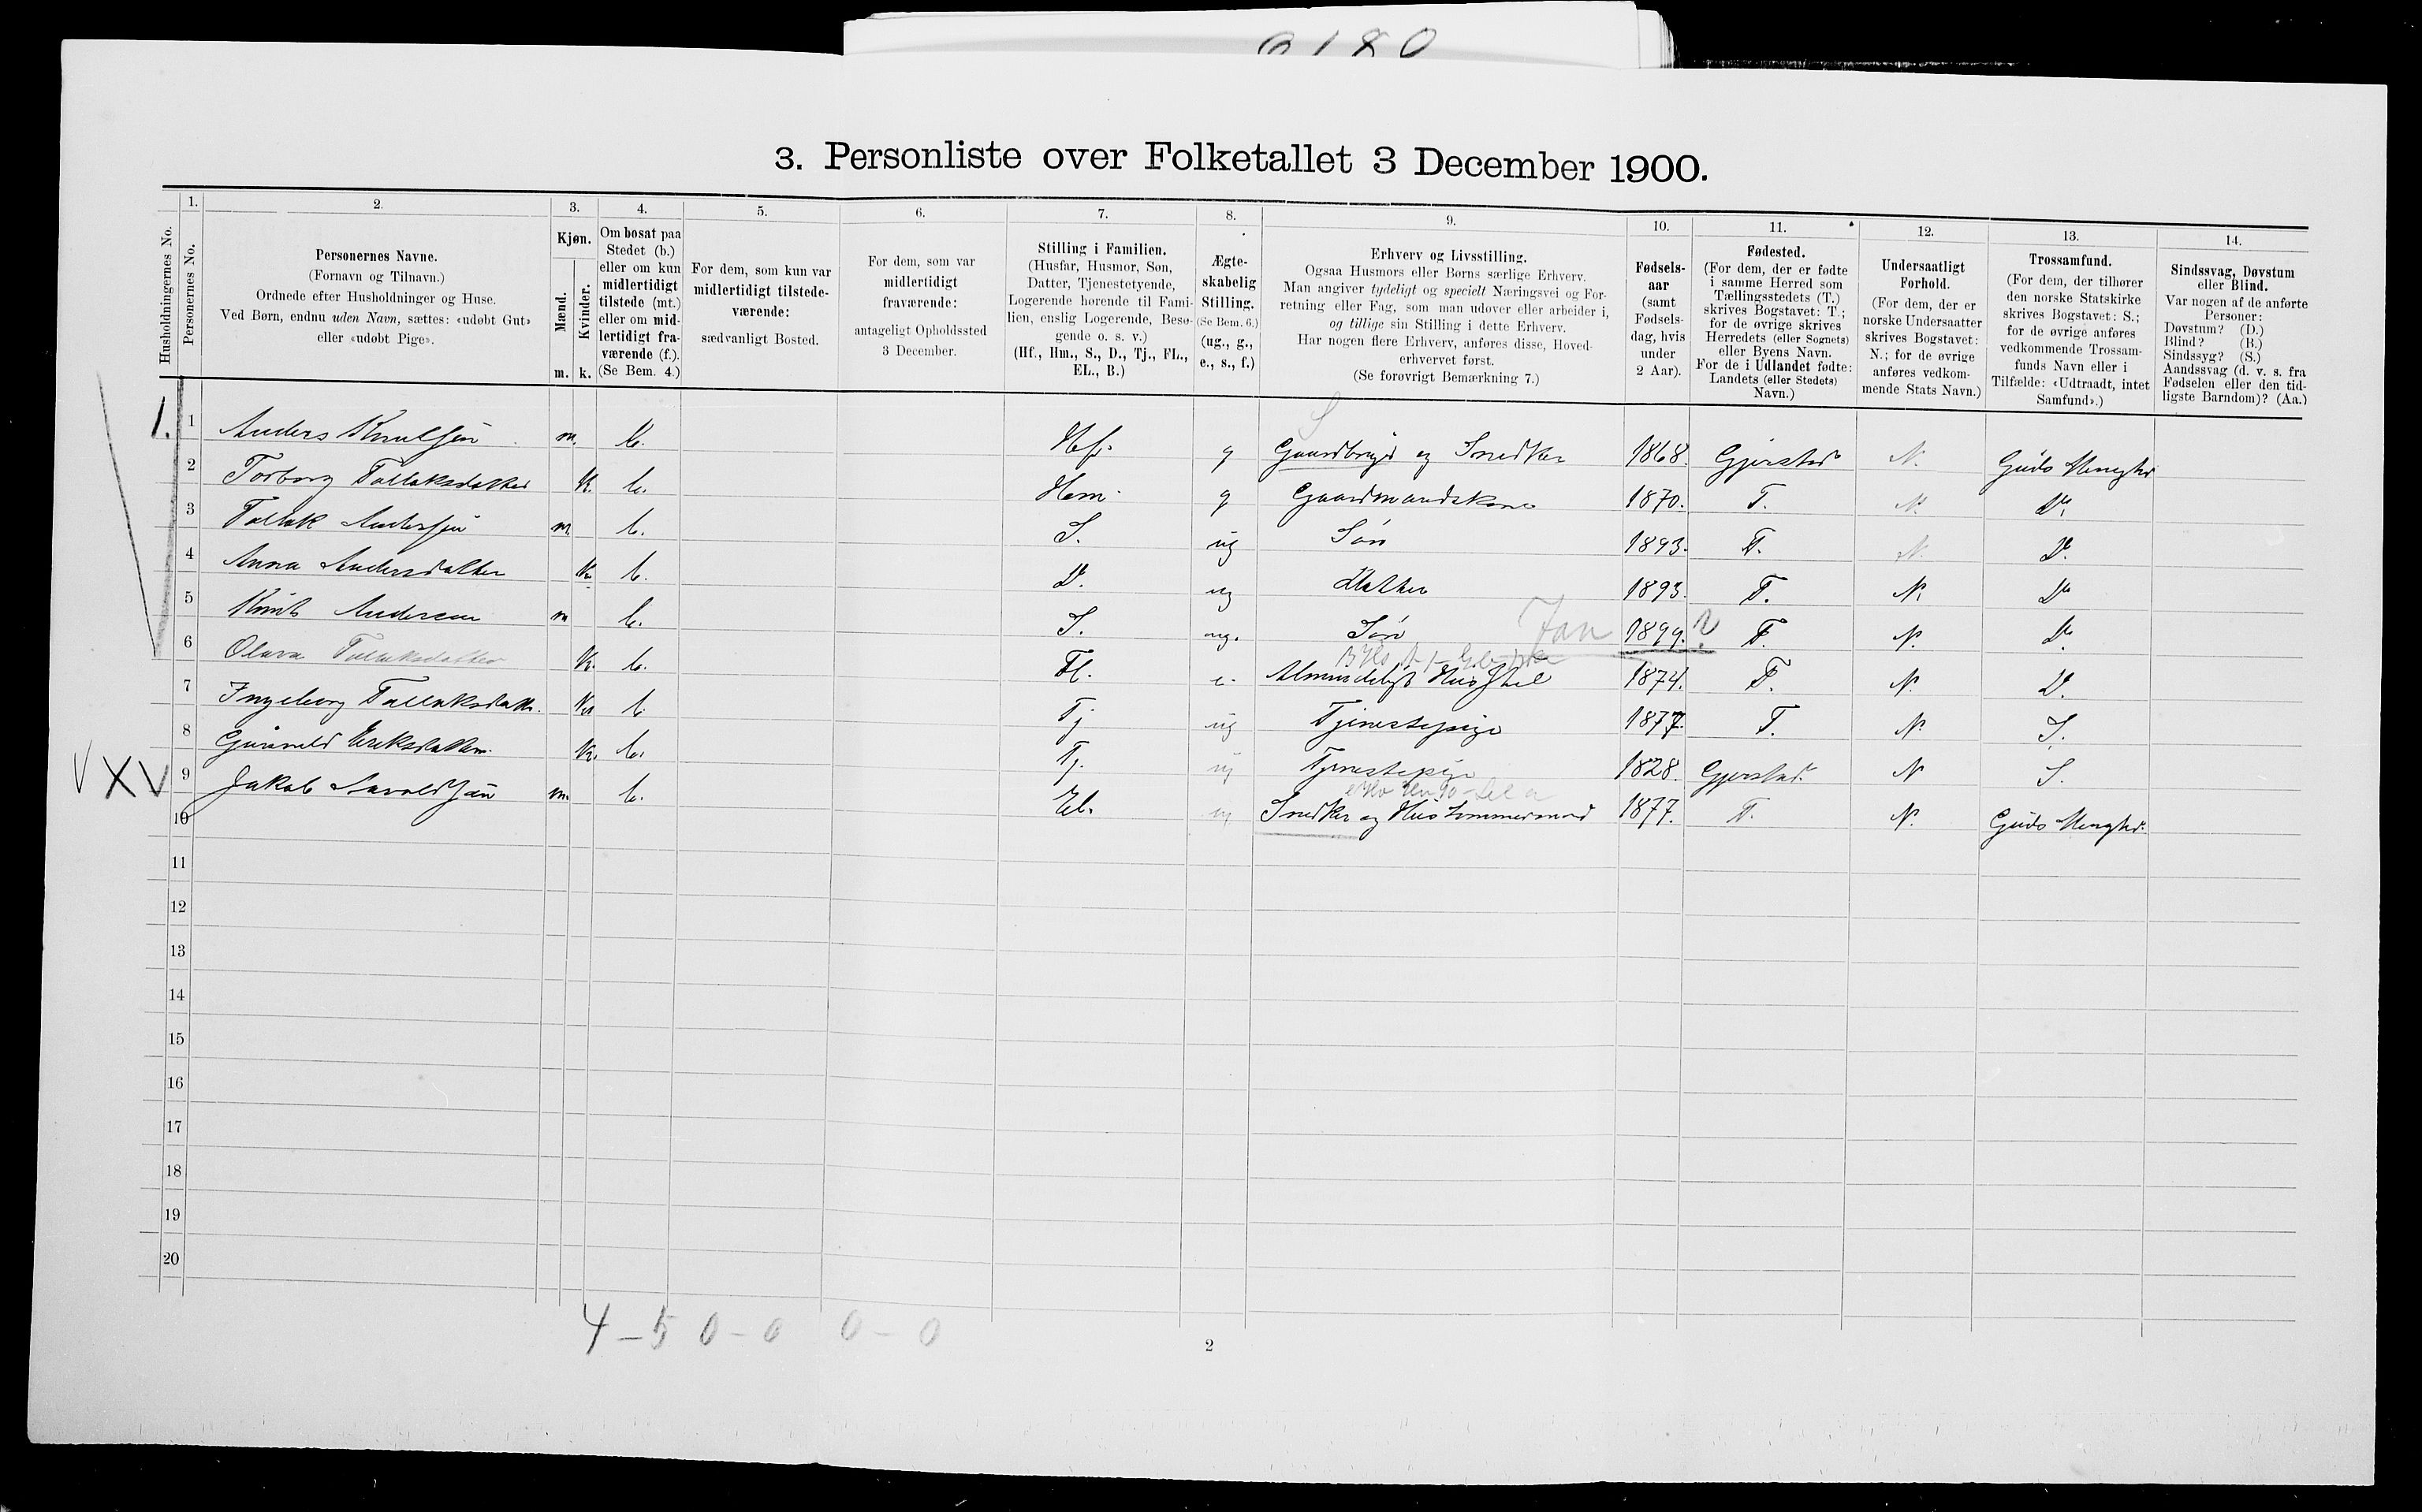 6180
3. Personliste over Folketallet 3 December 1900.
Husholdningernes No.
1.
Personernes No.
2.
Personernes Navne.
(Fornavn og Tilnavn.)
Ordnede efter Husholdninger og Huse.
Ved Børn, endnu uden Navn, sættes: «udøbt Gut»
eller «udøbt Pige».
3.
Kjøn.
Mænd.
Kvinder.
m. k.
4.
Om bosat paa
Stedet (b.)
eller om kun
midlertidigt
tilstede (mt.)
eller om mid-
lertidigt fra-
værende (f.).
(Se Bem. 4.)
5.
For dem, som kun var
midlertidigt tilstede-
værende:
sædvanligt Bosted.
6.
For dem, som var
midlertidigt
fraværende:
antageligt Opholdssted
3 December.
7.
Stilling i Familien.
(Husfar, Husmor, Søn,
Datter, Tjenestetyende,
Logerende hørende til Fami-
lien, enslig Logerende, Besø-
gende o. s. v.)
(Hf., Hm., S., D., Tj., FL.,
EL., B.)
8.
Ægte-
skabelig
Stilling.
(Se Bem. 6.)
(ug., g.,
e., s., f.)
9.
Erhverv og Livsstilling.
Ogsaa Husmors eller Børns særlige Erhverv.
Man angiver tydeligt og specielt Næringsvei og For-
retning eller Fag, som man udøver eller arbeider i,
og tillige sin Stilling i dette Erhverv.
Har nogen flere Erhverv, anføres disse, Hoved-
erhvervet først.
(Se forøvrigt Bemærkning 7.)
10.
Fødsels-
aar
(samt
Fødsels-
dag, hvis
under
2 Aar).
11.
Fødested.
(For dem, der er fødte
i samme Herred som
Tællingsstedets (T.)
skrives Bogstavet: T.;
for de øvrige skrives
Herredets (eller Sognets)
eller Byens Navn.
For de i Udlandet fødte:
Landets (eller Stedets)
Navn.)
12.
Undersaatligt
Forhold.
(For dem, der er
norske Undersaatter
skrives Bogstavet:
N.; for de øvrige
anføres vedkom-
mende Stats Navn.)
13.
Trossamfund.
(For dem, der tilhører
den norske Statskirke
skrives Bogstavet: S.;
for de øvrige anføres
vedkommende Trossam-
funds Navn eller i
Tilfælde: «Udtraadt, intet
Samfund».)
14.
Sindssvag, Døvstum
eller Blind.
Var nogen af de anførte
Personer:
Døvstum? (D.)
Blind? (B.)
Sindssyg? (S.)
Aandssvag (d. v. s. fra
Fødselen eller den tid-
ligste Barndom)? (Aa.)
S
1. 1 Anders Knutsen m. b. Hf. g Gaardbruger og Snedker 1868. Gjerstad N. Guds Menighed
2 Torborg Tallaksdatter K. b. Hm. g Gaardmandskone 1870. T. N. Do.
3 Tallak Andersen m. b. S. ug Søn 1893. T. N. Do.
4 Anna Andersdatter K. b. D. ug Datter 1893. T. N. Do
5 Knut Andersen m b. S. ug. Søn Jan 1899. ? T. N. Do.
6 Olava Tallaksdatter K. b. Fl. e. Almindeligt Husstel 1874. T. N. D.
7 Ingeborg Tallaksdatr. K. b. Tj ug Tjenestepige 1877. T. N. S.
8 Gunneld Eriksdatter. K. b. Tj. ug Tjenestepige 1828. Gjerstad. N S.
V X V 9 Jakob Aavoldsen m. b. El. ug Snedker og Hustømmermand 1877. T. N. Guds Menighed.
10
11
12
13
14
15
16
17
18
19
20
4 – 5 0 – 0 0 – 0
2